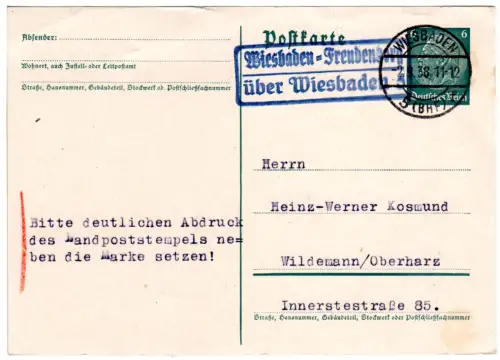 Absender:
Wohnort, auch Zustell- oder Leitpostamt
Straße, Hausnummer, Gebäudeteil, Stockwerk od. Postschließfachnummer
Bitte deutlichen Abdruck
des Landpoststempels ne=
ben die Marke setzen!
Postkarte
Wiesbaden=Freuden
über Wiesbaden
WIESBADEN
38.11-12
5 (BHF)
6
Deutsches Reich
Herrn
Heinz-Werner Kosmund
Wildemann/Oberharz
Innerstestraße 85.
Straße, Hausnummer, Gebäudeteil, Stockwerk oder Postschließfachnummer